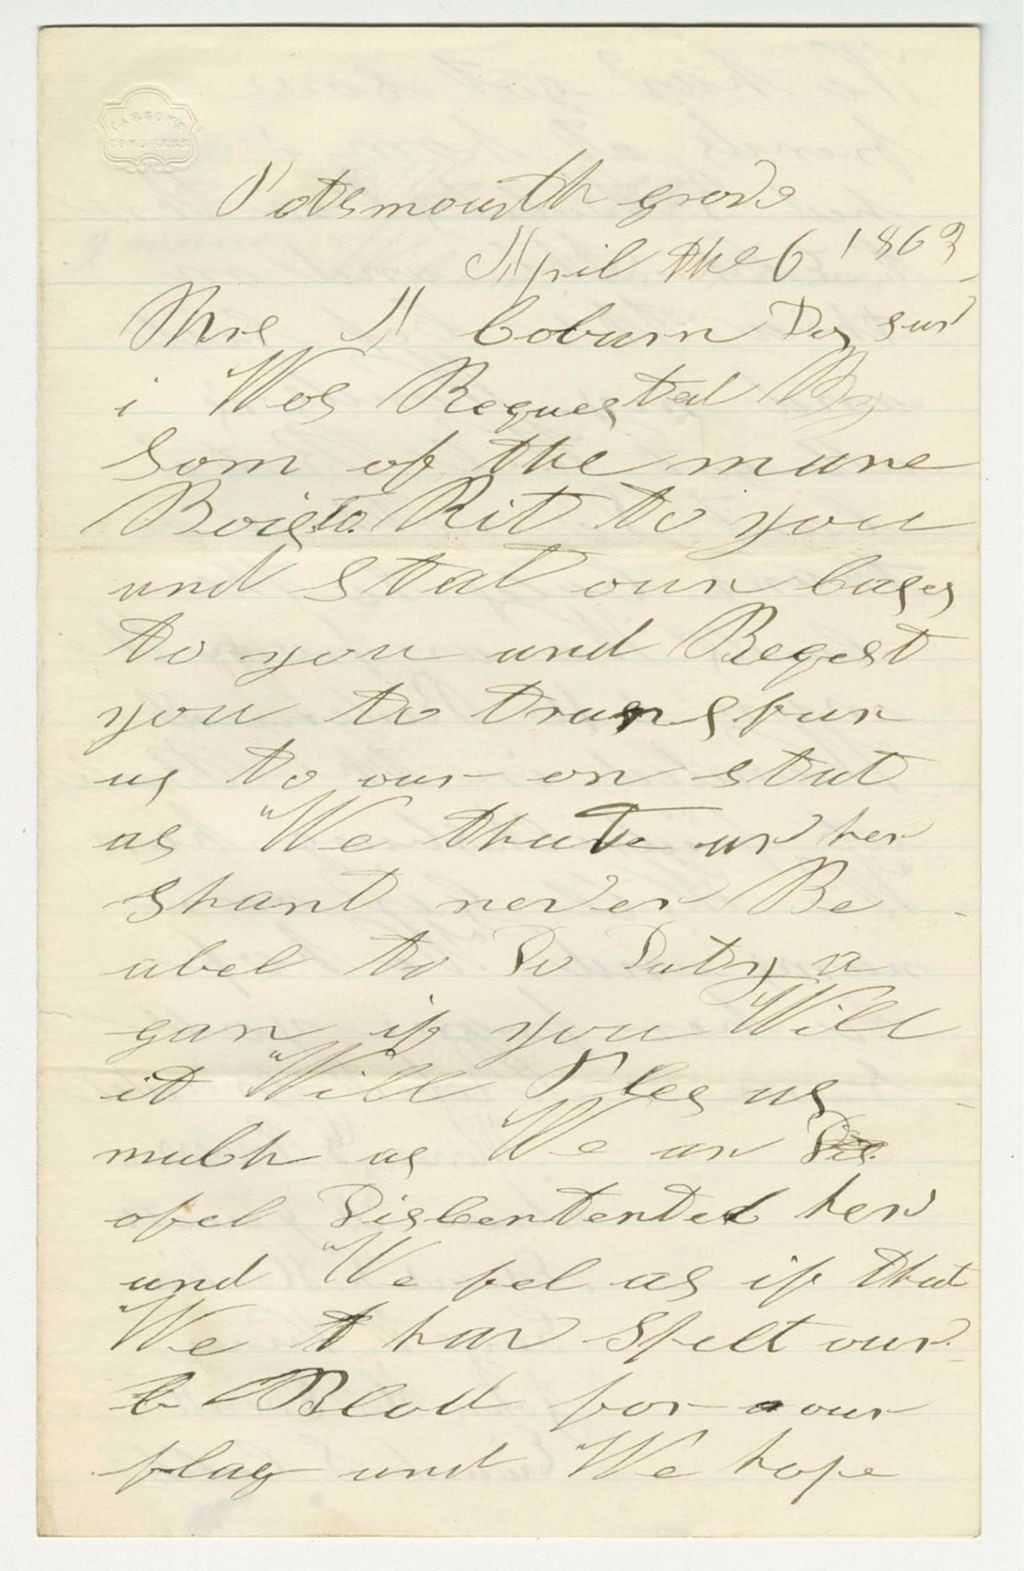 CARSON'S
CONGRESS
Potsmourth grove
April the 6 1863
Mrs A Coburn Der sur
i Wos Requested By
Som of the mane
Bois to Rit to you
und Stat our Cases
to you and Reqest
you to transfur
us to our on stat
as We that ar her
shant never Be
abel to Do Duty a
gan if you Will
it Will Ples us
much as We ar
ofel Discententel her
und We fel as if that
We hav Spelt our
Blod for our
flag und We hope